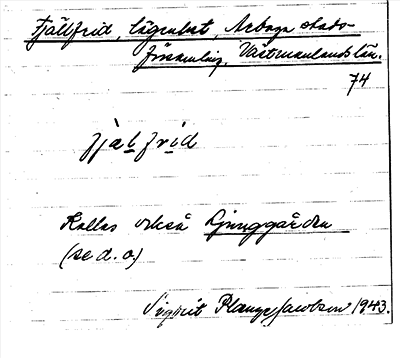 Fjällfrid, lägenhet, Arboga stads-
församling, Västmanlands län.
74
fjälfrid
Kallas också Ljunggården
(se d. o.)
Sigbrit Plange Jacobson 1943.